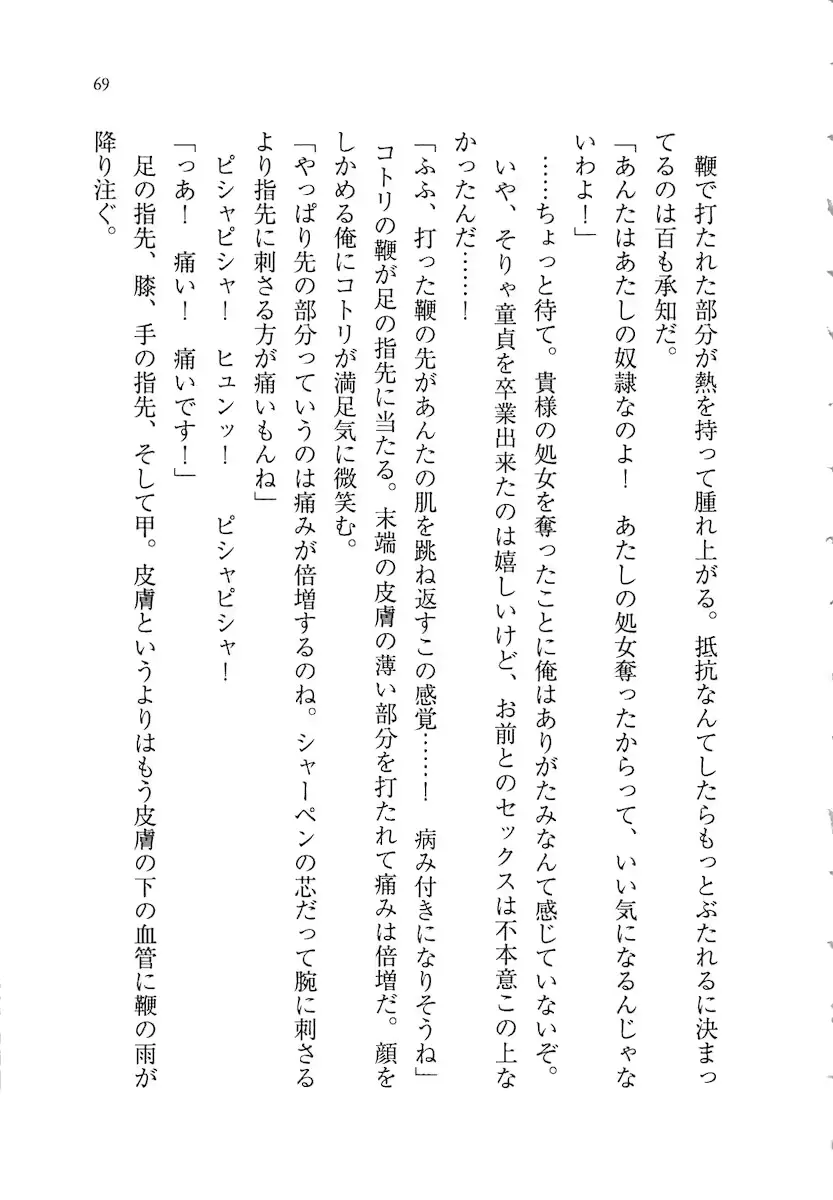 69
鞭で打たれた部分が熱を持って腫れ上がる。抵抗なんてしたらもっとぶたれるに決まっ
てるのは百も承知だ。
「あんたはあたしの奴隷なのよ！　あたしの処女奪ったからって、いい気になるんじゃな
いわよ！」
……ちょっと待て。貴様の処女を奪ったことに俺はありがたみなんて感じていないぞ。
いや、そりゃ童貞を卒業出来たのは嬉しいけど、お前とのセックスは不本意この上な
かったんだ……！
「ふふ、打った鞭の先があんたの肌を跳ね返すこの感覚……！　病み付きになりそうね」
コトリの鞭が足の指先に当たる。末端の皮膚の薄い部分を打たれて痛みは倍増だ。顔を
しかめる俺にコトリが満足気に微笑む。
「やっぱり先の部分っていうのは痛みが倍増するのね。シャーペンの芯だって腕に刺さる
より指先に刺さる方が痛いもんね」
ピシャピシャ！　ヒュンッ！　ピシャピシャ！
「っあ！　痛い！　痛いです！」
足の指先、膝、手の指先、そして甲。皮膚というよりはもう皮膚の下の血管に鞭の雨が
降り注ぐ。